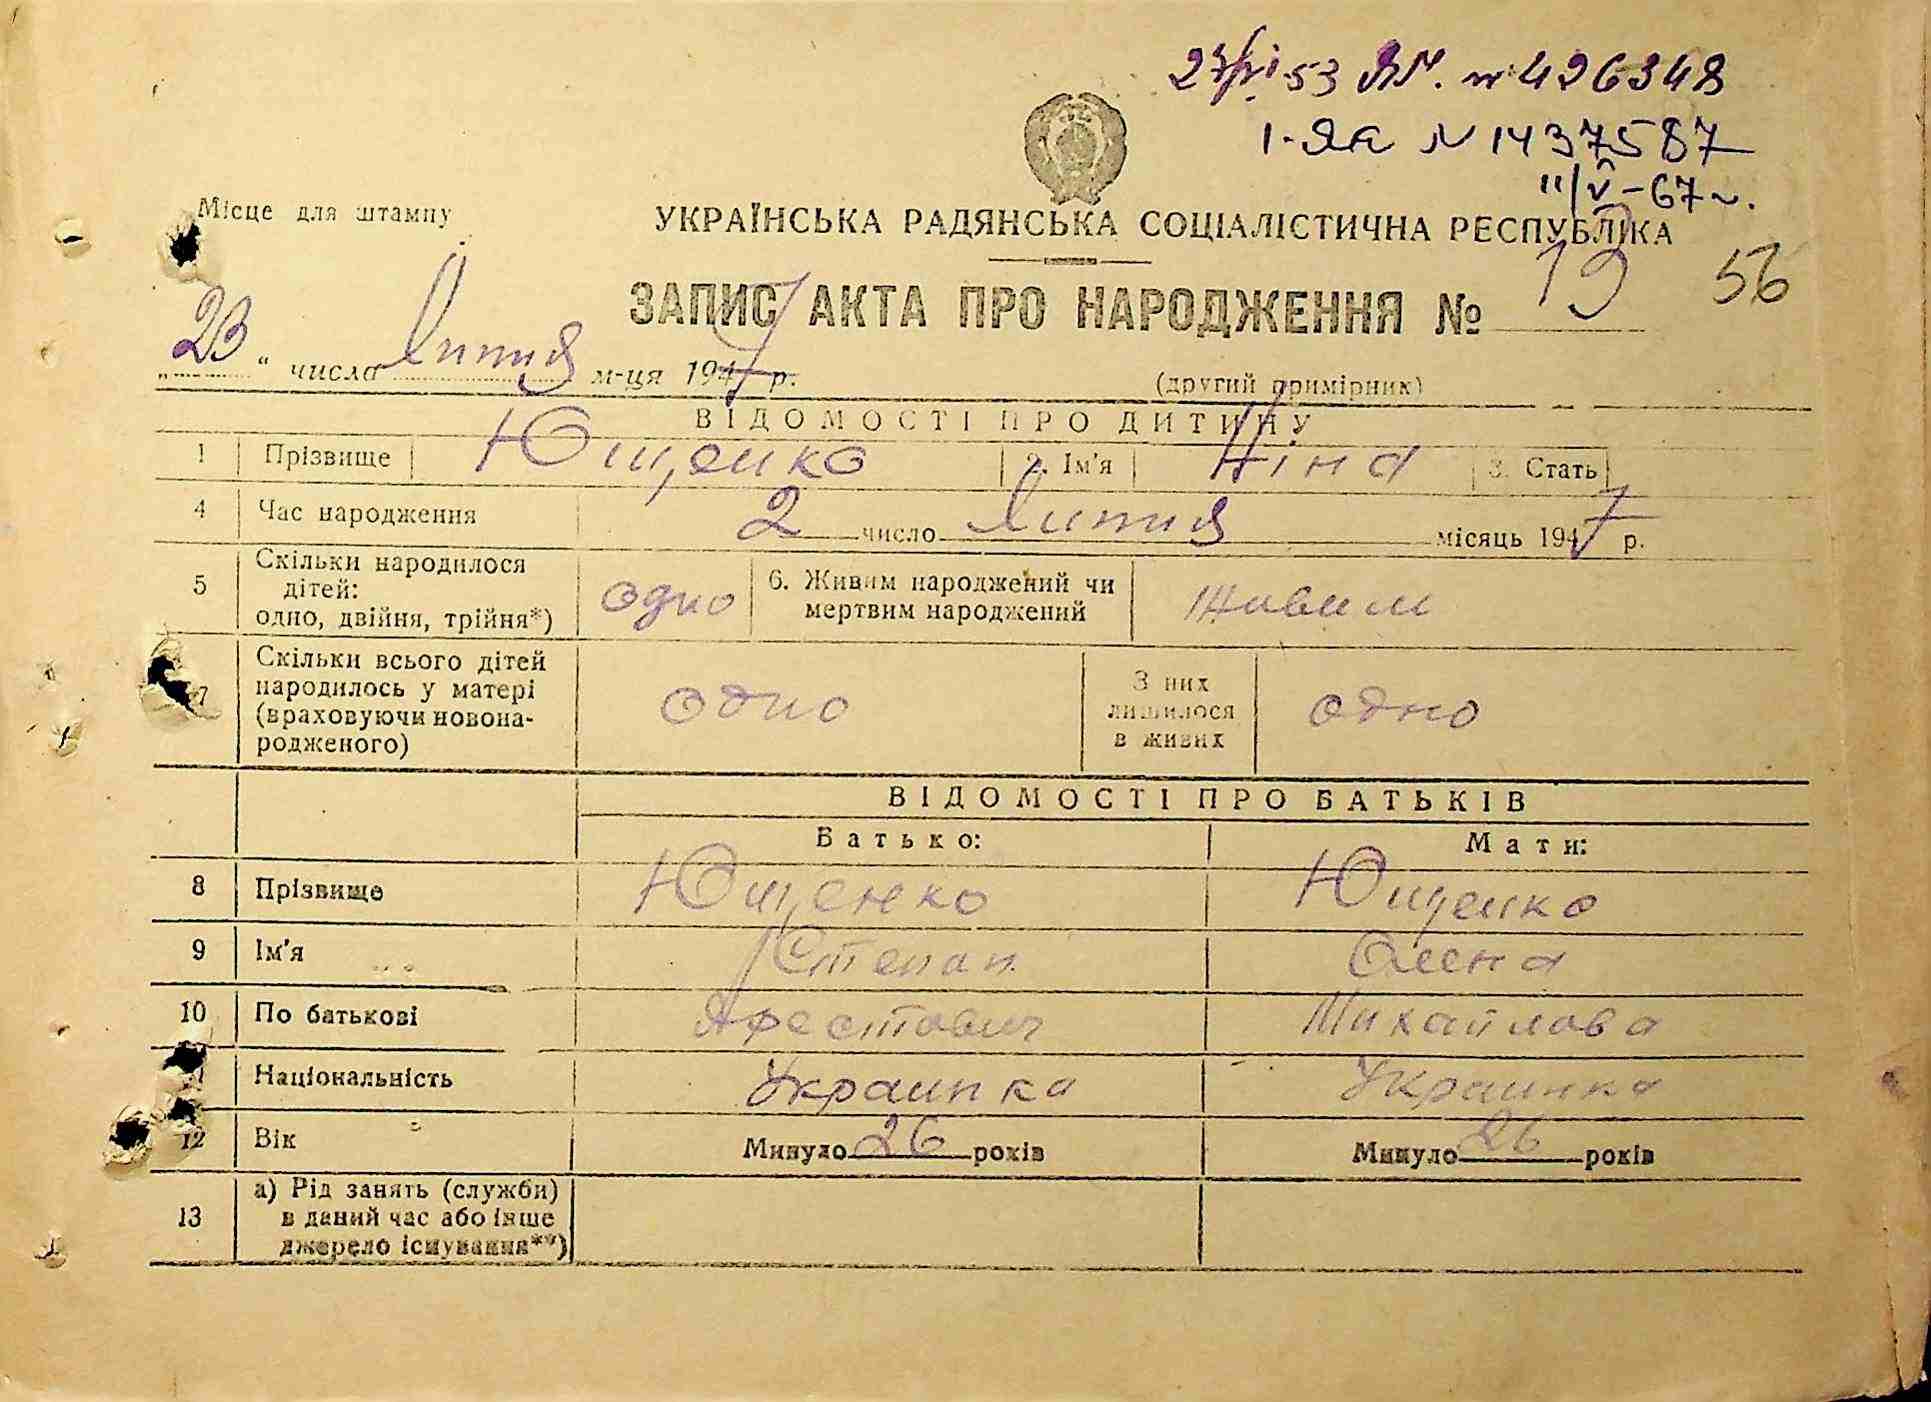 53 № 426348
І-ЯК N 1437587
11/V-67
Місце для штампу
УКРАЇНСЬКА РАДЯНСЬКА СОЦІАЛІСТИЧНА РЕСПУБЛІКА
ЗАПИС АКТА ПРО НАРОДЖЕННЯ № 19 56
„23“ числа Липня м-ця 1947 р.
(другий примірник)
ВІДОМОСТІ ПРО ДИТИНУ
1 Прізвище Ющенко 2. Ім'я Ніна 3. Стать
4 Час народження 2 число Липня місяць 1947 р.
5 Скільки народилося
дітей:
одно, двійня, трійня*) одно
6. Живим народжений чи
мертвим народжений Живим
7 Скільки всього дітей
народилось у матері
(враховуючи новона-
родженого) одно
З них
лишилося
в живих одно
ВІДОМОСТІ ПРО БАТЬКІВ
Батько: Мати:
8 Прізвище Ющенко Ющенко
9 Ім'я Степан Олена
10 По батькові Арестович Михайлова
Національність Украинка Украинка
12 Вік Минуло 26 років Минуло 26 років
13 а) Рід занять (служби)
в даний час або інше
джерело існування**)